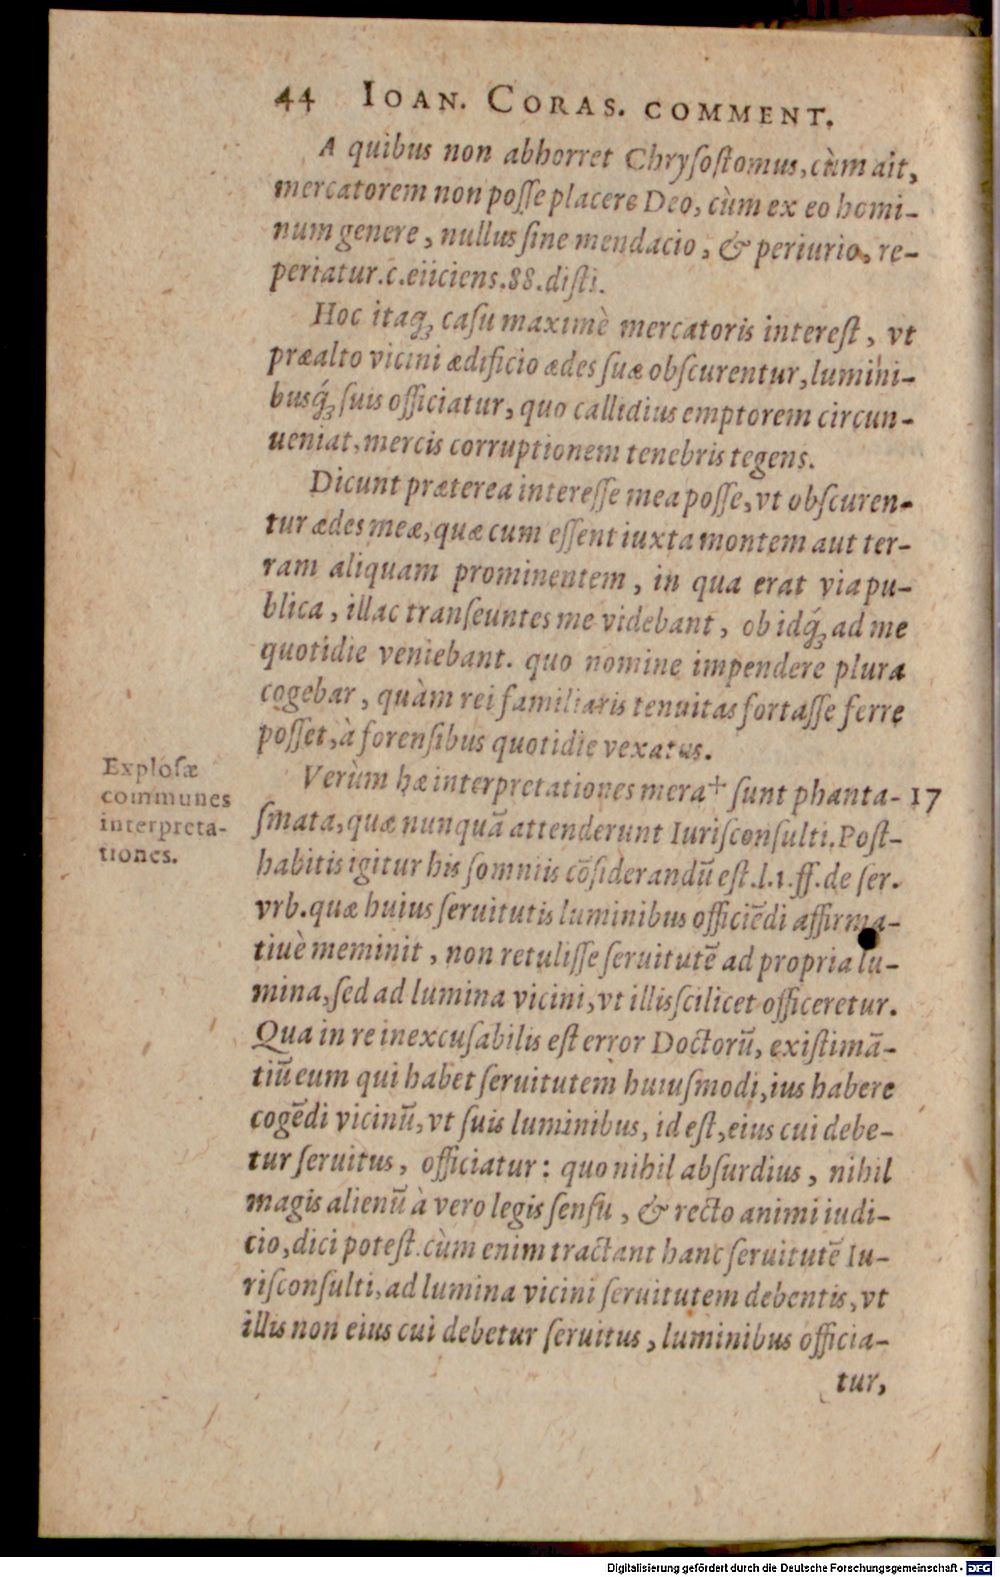 44 IOAN. CORAS. COMMENT.
A quibus non abhorret Chryſoſtomus, cùm ait,
mercatorem non poſſe placere Deo, cùm ex eo homi-
num genere, nullus ſine mendacio, & periurio, re-
periatur.c.eiiciens.88.diſti.
Hoc itaq; caſu maximè mercatoris intereſt, vt
præalto vicini ædificio ædes ſuæ obſcurentur, lumini-
busq́; ſuis officiatur, quo callidius emptorem circun-
ueniat, mercis corruptionem tenebris tegens.
Dicunt præterea intereſſe mea poſſe, vt obſcuren-
tur ædes meæ, quæ cum eſſent iuxta montem aut ter-
ram aliquam prominentem, in qua erat via pu-
blica, illac tranſeuntes me videbant, ob idq́; ad me
quotidie veniebant. quo nomine impendere plura
cogebar, quàm rei familiaris tenuitas fortaſſe ferre
poſſet, à forenſibus quotidie vexatus.
Explosæ
communes
interpreta-
tiones.
Verùm hæ interpretationes mera† ſunt phanta- 17
ſmata, quæ nunquā attenderunt Iuriſconſulti. Poſt-
habitis igitur his ſomniis cōſiderandū eſt.l.1.ff.de ſer.
vrb. quæ huius ſeruitutis luminibus officiēdi affirma-
tiuè meminit, non retuliſſe ſeruitutē ad propria lu-
mina, ſed ad lumina vicini, vt illis ſcilicet officeretur.
Qua in re inexcuſabilis eſt error Doctorū, exiſtimā-
tiū eum qui habet ſeruitutem huiuſmodi, ius habere
cogēdi vicinū, vt ſuis luminibus, id eſt, eius cui debe-
tur ſeruitus, officiatur: quo nihil abſurdius, nihil
magis alienū à vero legis ſenſu, & recto animi iudi-
cio, dici poteſt. cùm enim tractant hanc ſeruitutē Iu-
riſconſulti, ad lumina vicini ſeruitutem debentis, vt
illis non eius cui debetur ſeruitus, luminibus officia-
tur,
Digitalisierung gefördert durch die Deutsche Forschungsgemeinschaft - DFG